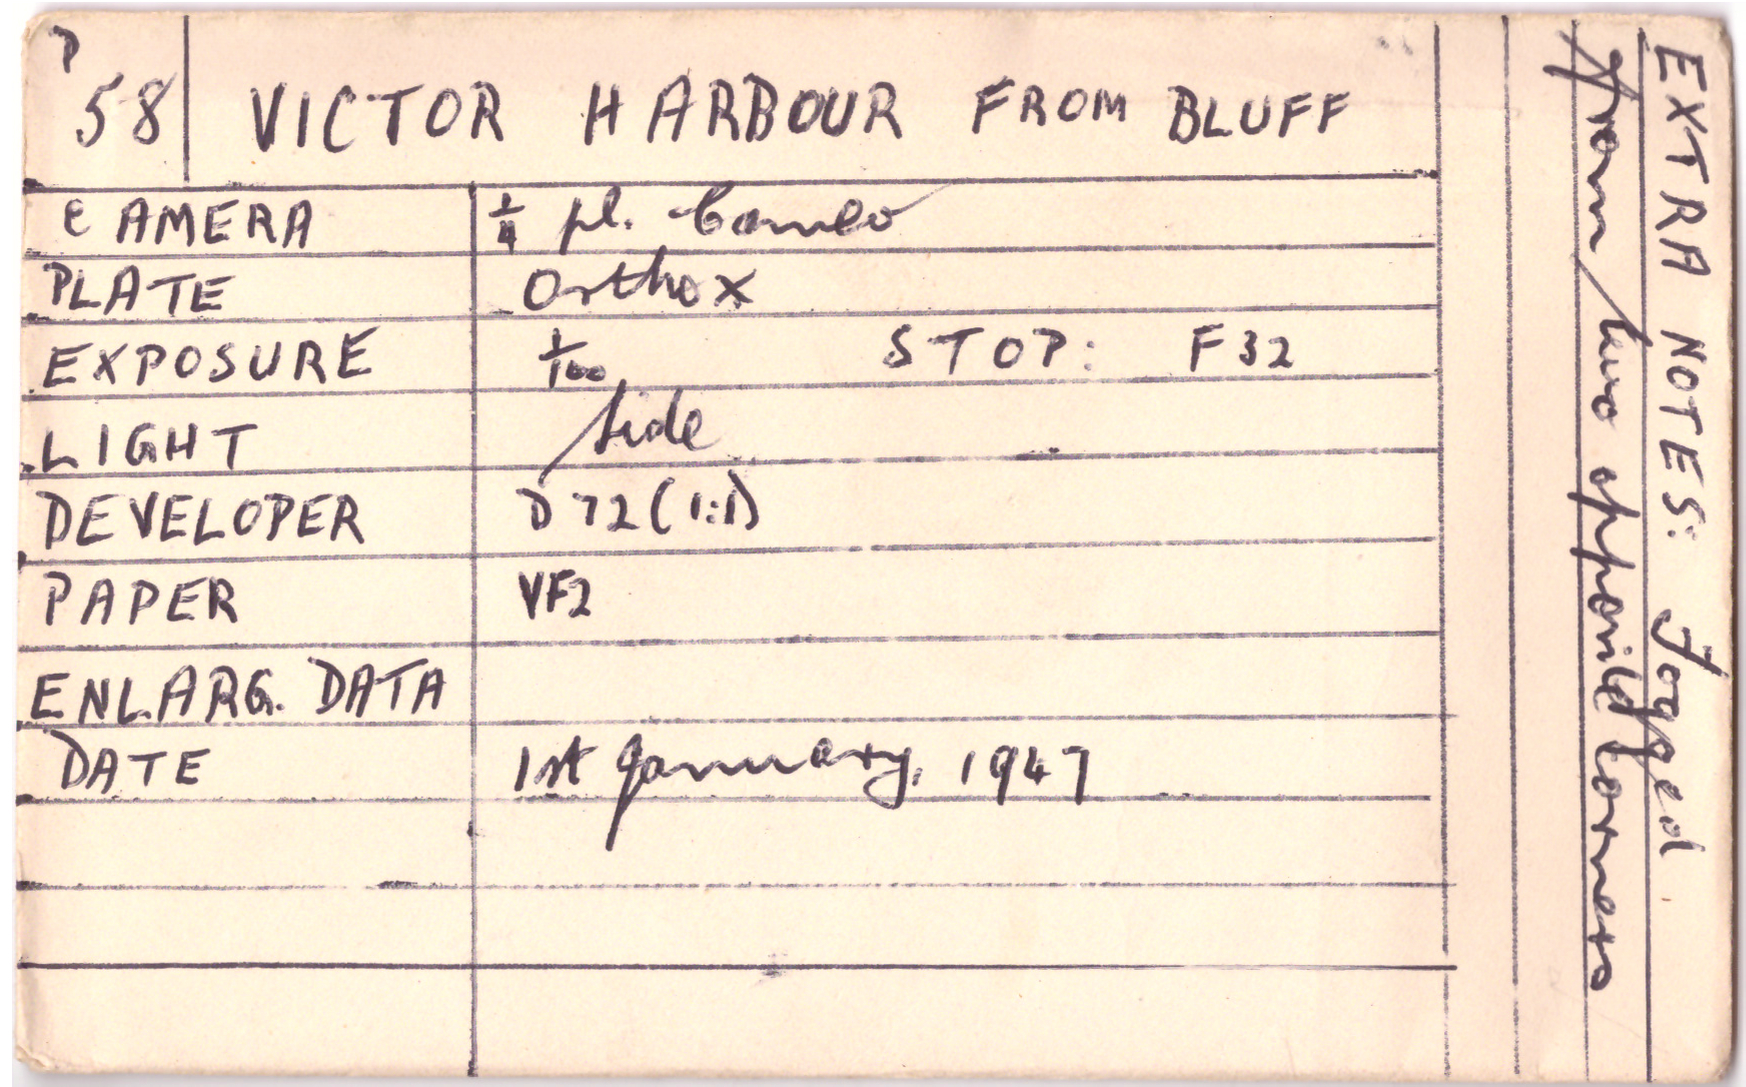 P
58 VICTOR HARBOUR FROM BLUFF
CAMERA 1/4 pl. Cameo
PLATE Orthox
EXPOSURE 1/100 STOP: F32
LIGHT Side
DEVELOPER D72 (1:1)
PAPER VF2
ENLARG. DATA
DATE 1st January, 1947
EXTRA NOTES: Fogged
from two opposite corners